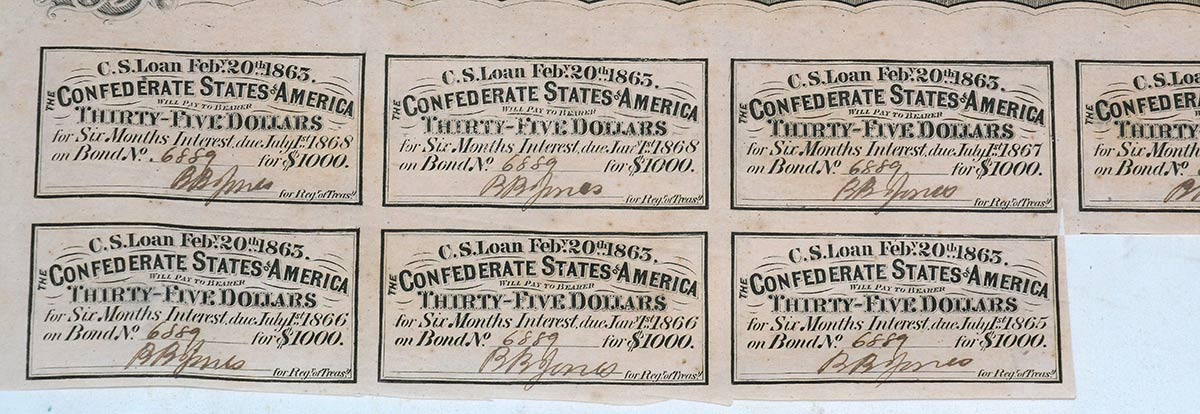 C.S. Loan Feby. 20th 1863.
THE CONFEDERATE STATES OF AMERICA
WILL PAY TO BEARER
THIRTY-FIVE DOLLARS
for Six Months Interest, due July 1st 1868
on Bond No. 6889 for $1000.
BB Jones for Regr. of Treasy.
C.S. Loan Feby. 20th 1863.
THE CONFEDERATE STATES OF AMERICA
WILL PAY TO BEARER
THIRTY-FIVE DOLLARS
for Six Months Interest, due Jany 1st 1868
on Bond No. 6889 for $1000.
BB Jones for Regr. of Treasy.
C.S. Loan Feby. 20th 1863.
THE CONFEDERATE STATES OF AMERICA
WILL PAY TO BEARER
THIRTY-FIVE DOLLARS
for Six Months Interest, due July 1st 1867
on Bond No. 6889 for $1000.
BB Jones for Regr. of Treasy.
C.S. Loa
THE CONFEDER
THIRTY
for Six Month
on Bond No.
B
C.S. Loan Feby. 20th 1863.
THE CONFEDERATE STATES OF AMERICA
WILL PAY TO BEARER
THIRTY-FIVE DOLLARS
for Six Months Interest, due July 1st 1866
on Bond No. 6889 for $1000.
BB Jones for Regr. of Treasy.
C.S. Loan Feby. 20th 1863.
THE CONFEDERATE STATES OF AMERICA
WILL PAY TO BEARER
THIRTY-FIVE DOLLARS
for Six Months Interest, due Jany 1st 1866
on Bond No. 6889 for $1000.
BB Jones for Regr. of Treasy.
C.S. Loan Feby. 20th 1863.
THE CONFEDERATE STATES OF AMERICA
WILL PAY TO BEARER
THIRTY-FIVE DOLLARS
for Six Months Interest, due July 1st 1865
on Bond No. 6889 for $1000.
BB Jones for Regr. of Treasy.